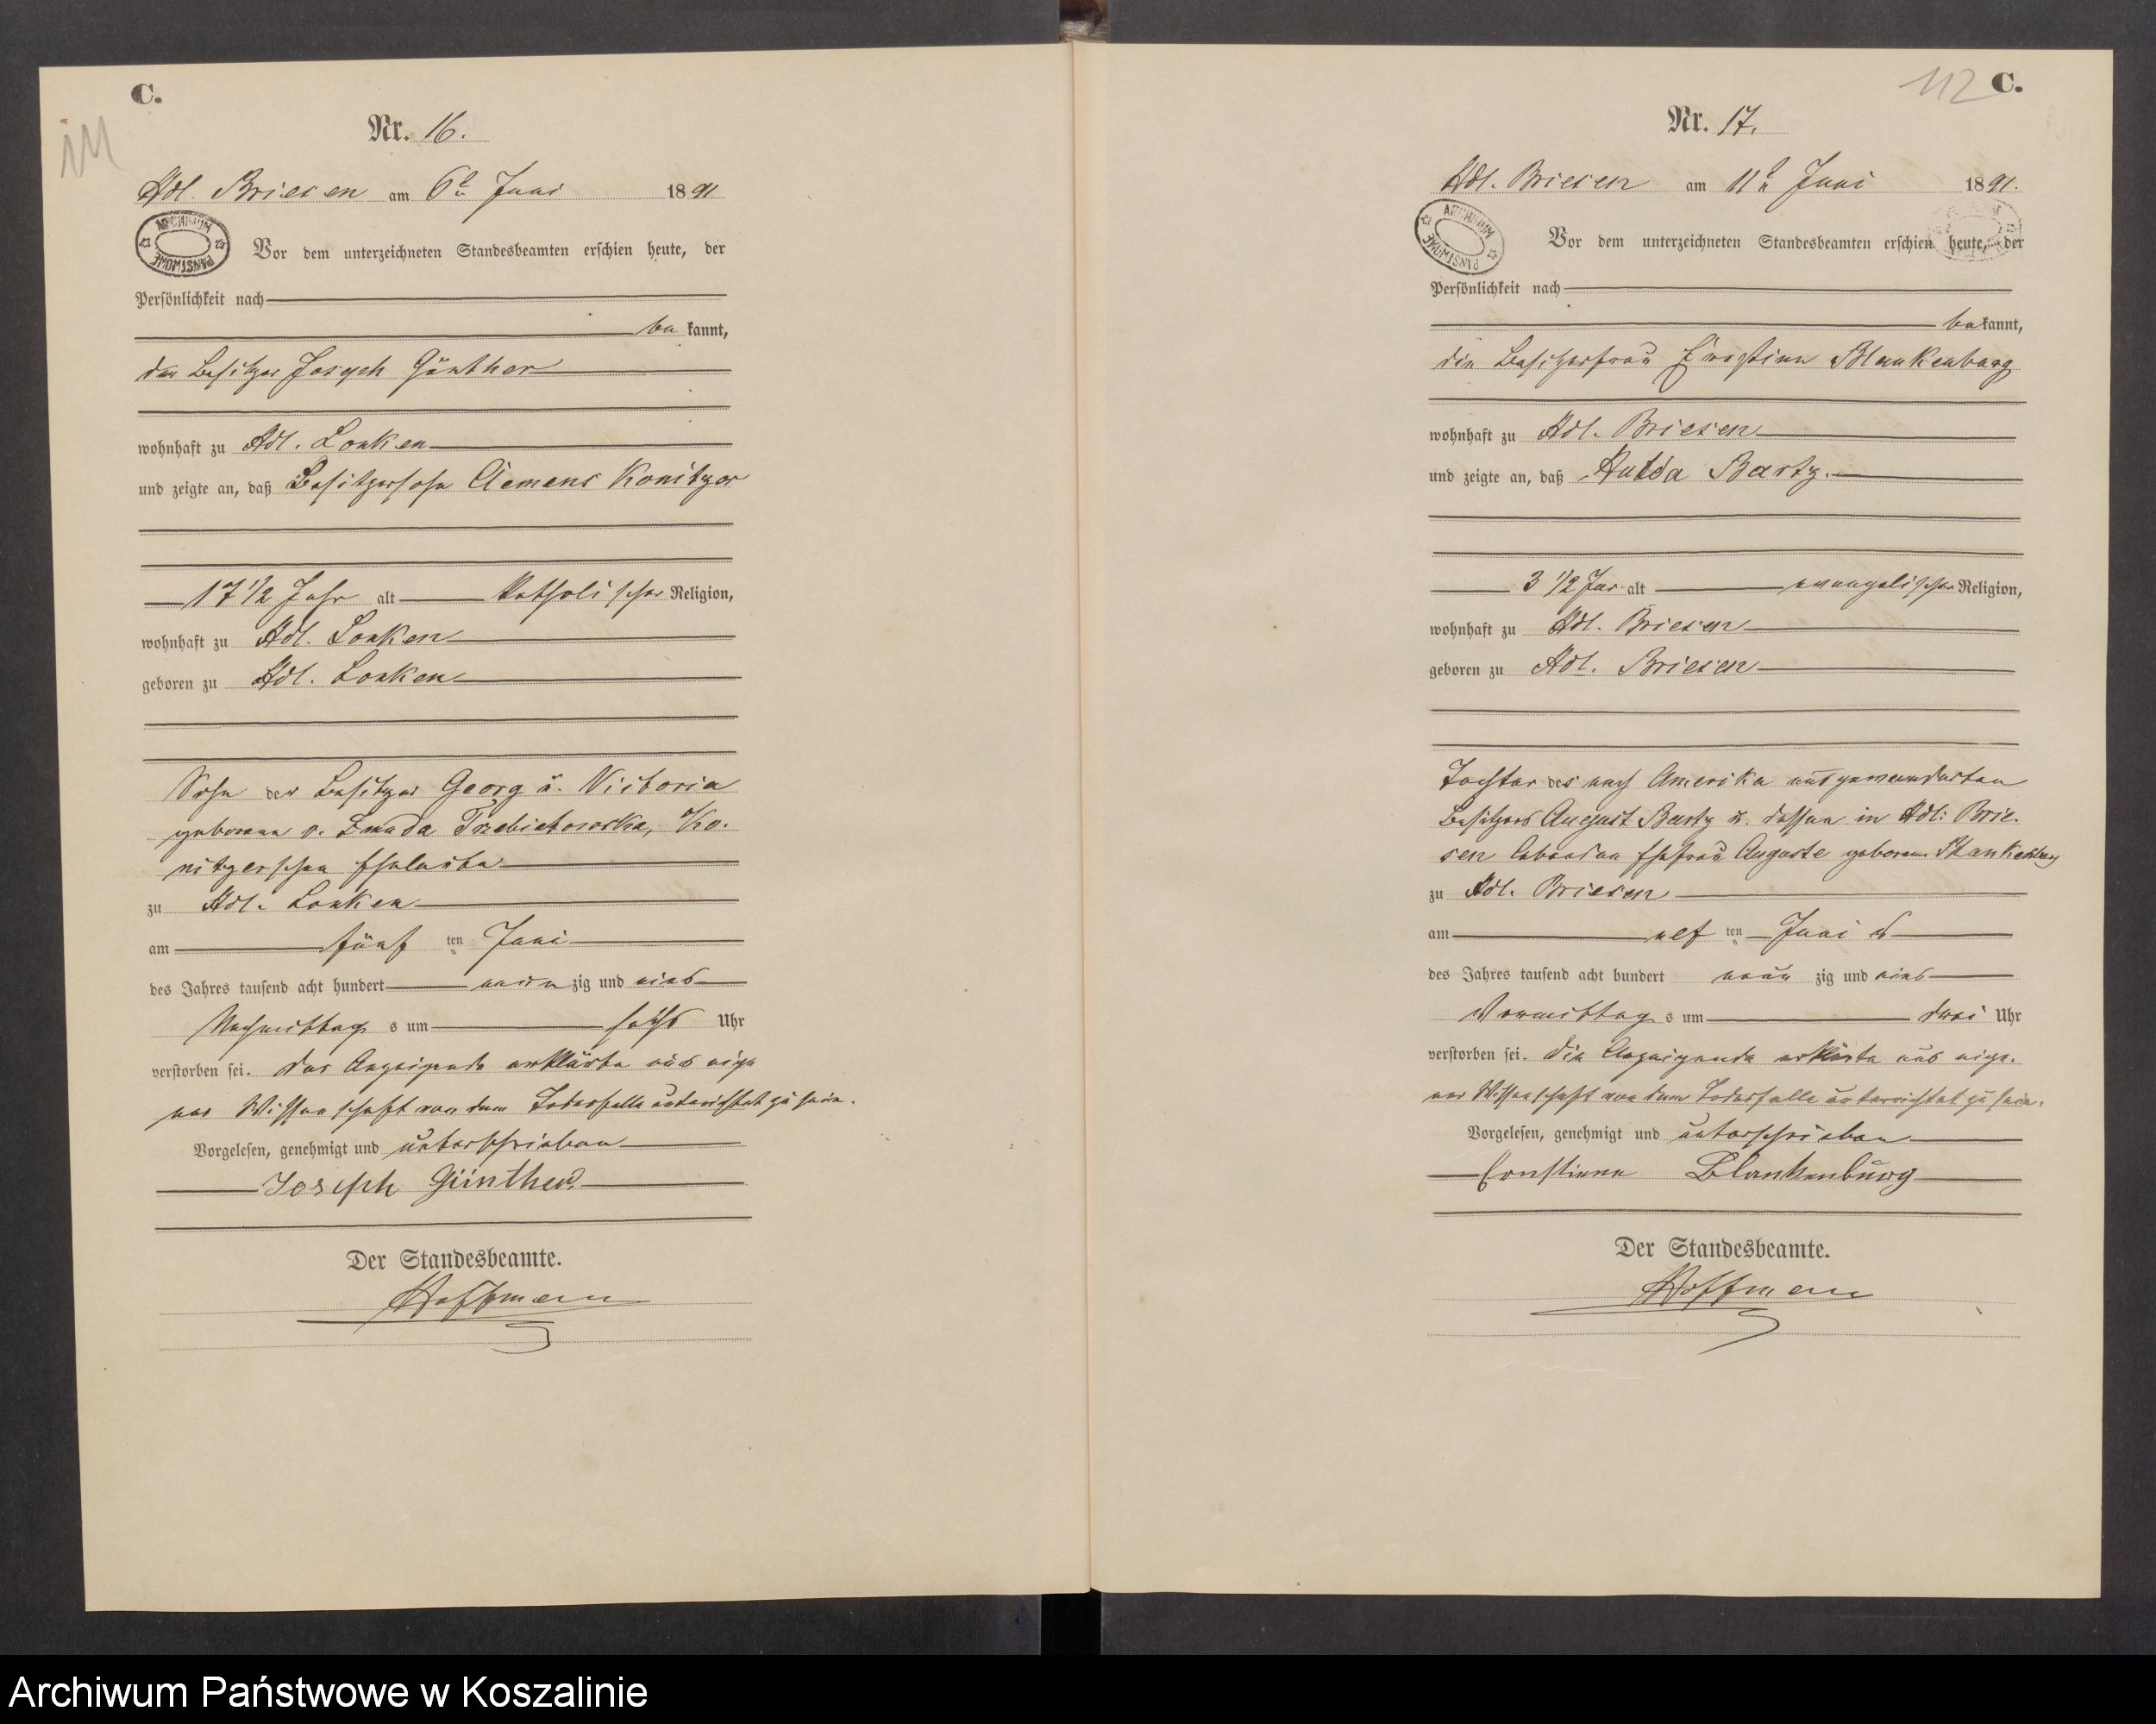 C.
111
Nr. 16.
Adl. Briesen am 6t Juni 1891
ARCHIWUM PAŃSTWOWE
Vor dem unterzeichneten Standesbeamten erschien heute, der
Persönlichkeit nach
be kannt,
der Besitzer Joseph Günther
wohnhaft zu Adl. Lonken
und zeigte an, daß Besitzersohn Clemens Konitzer
17 1/2 Jahr alt katholischer Religion,
wohnhaft zu Adl. Lonken
geboren zu Adl. Lonken
Sohn der Besitzer Georg u. Victoria
geborene v. Zmuda Trzebiatowska, Ko-
nitzerschen Eheleute
zu Adl. Lonken
am fünf ten Juni
des Jahres tausend acht hundert neun zig und eins
Nachmittag s um sechs Uhr
verstorben sei. Der Anzeigende erklärte aus eige
ner Wissenschaft von dem Todesfalle unterrichtet zu sein.
Vorgelesen, genehmigt und unterschrieben
Joseph Günther
Der Standesbeamte.
Hoffmann
112 C.
Nr. 17.
Adl. Briesen am 11t Juni 1891.
ARCHIWUM PAŃSTWOWE
Vor dem unterzeichneten Standesbeamten erschien heute, der
Persönlichkeit nach
be kannt,
die Besitzerfrau Ernstine Blankenburg
wohnhaft zu Adl. Briesen
und zeigte an, daß Hulda Bartz.
3 1/2 Jar alt evangelischer Religion,
wohnhaft zu Adl. Briesen
geboren zu Adl. Briesen
Tochter des nach Amerika ausgewanderten
Besitzers August Bartz u. dessen in Adl. Brie-
sen lebenden Ehefrau Auguste geborene Blankenburg
zu Adl. Briesen
am elf ten Juni
des Jahres tausend acht hundert neun zig und eins
Vormittag s um drei Uhr
verstorben sei. Die Anzeigende erklärte aus eige-
ner Wissenschaft von dem Todesfalle unterrichtet zu sein.
Vorgelesen, genehmigt und unterschrieben
Ernstinne Blankenburg
Der Standesbeamte.
Hoffmann
Archiwum Państwowe w Koszalinie